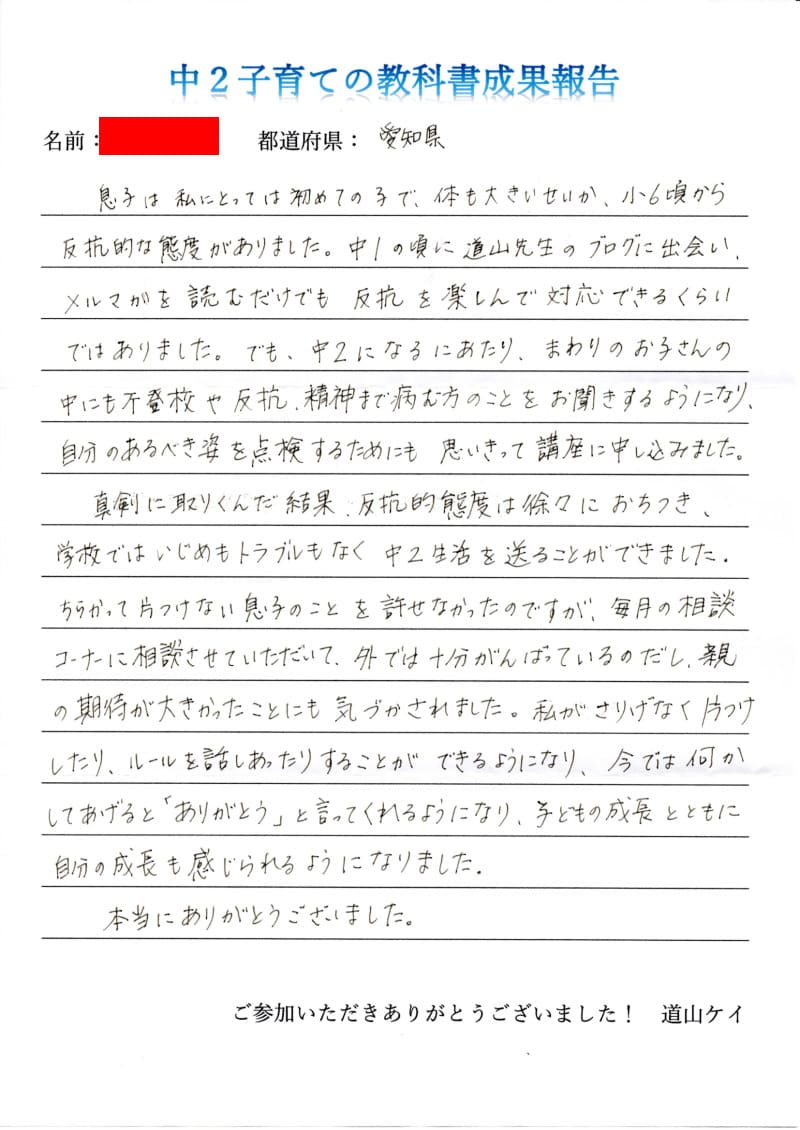 中2子育ての教科書成果報告
名前：
都道府県： 愛知県
息子は私にとっては初めての子で、体も大きいせいか、小6頃から
反抗的な態度がありました。中1の頃に道山先生のブログに出会い、
メルマガを読むだけでも反抗を楽しんで対応できるくらい
ではありました。でも、中2になるにあたり、まわりのお子さんの
中にも不登校や反抗、精神まで病む方のことをお聞きするようになり、
自分のあるべき姿を点検するためにも思いきって講座に申し込みました。
真剣に取りくんだ結果、反抗的態度は徐々におちつき、
学校ではいじめもトラブルもなく中2生活を送ることができました。
ちらかって片つけない息子のことを許せなかったのですが、毎月の相談
コーナーに相談させていただいて、外では十分がんばっているのだし、親
の期待が大きかったことにも気づかされました。私がさりげなく片つけ
したり、ルールを話しあったりすることができるようになり、今では何か
してあげると「ありがとう」と言ってくれるようになり、子どもの成長とともに
自分の成長も感じられるようになりました。
本当にありがとうございました。
ご参加いただきありがとうございました！ 道山ケイ